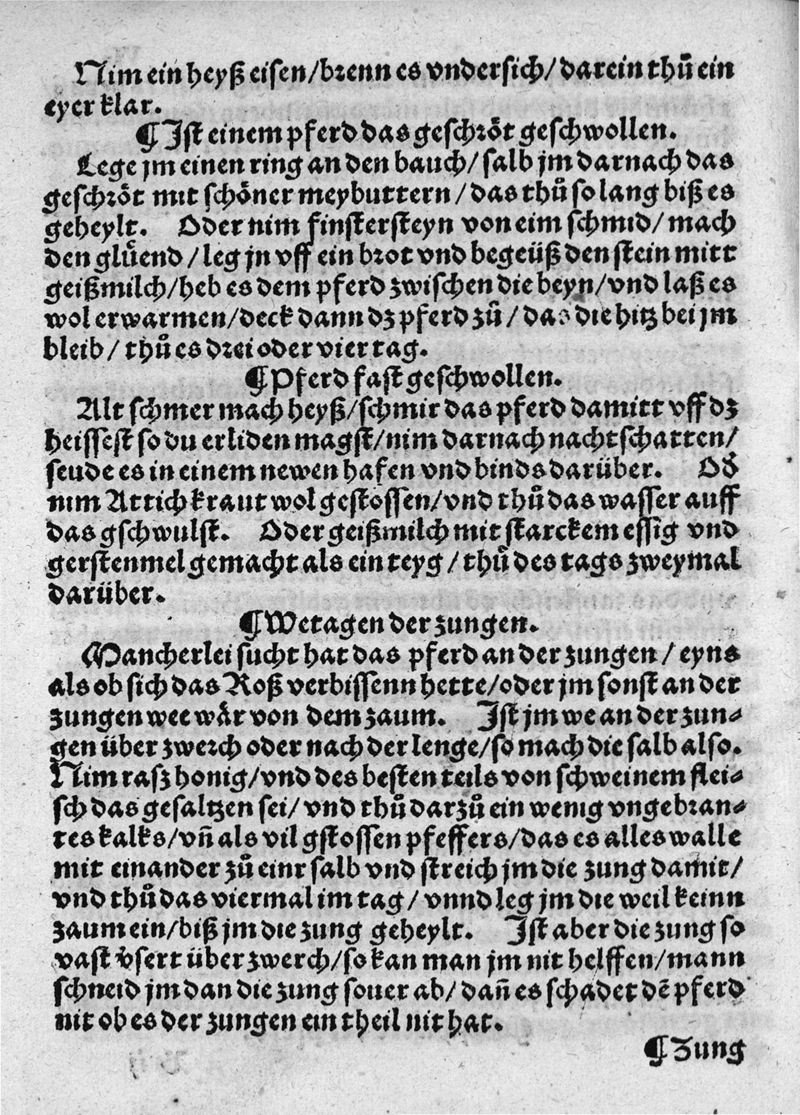 Nim ein heyß eisen/brenn es vndersich/darein thů ein
eyer klar.
¶ Ist einem pferd das geschröt geschwollen.
Lege jm einen ring an den bauch/salb jm darnach das
geschröt mit schöner meybuttern/das thů so lang biß es
geheylt. Oder nim finstersteyn von eim schmid/mach
den glůend/leg jn vff ein brot vnd begeüß den stein mitt
geißmilch/heb es dem pferd zwischen die beyn/vnd laß es
wol erwarmen/deck dann dz pferd zů/das die hitz bei jm
bleib/thů es drei oder vier tag.
¶ Pferd fast geschwollen.
Alt schmer mach heyß/schmir das pferd damitt vff dz
heissest so du erliden magst/nim darnach nachtschatten/
seude es in einem newen hafen vnd binds darüber. Od̕
nim Attich kraut wol gestossen/vnd thů das wasser auff
das gschwulst. Oder geißmilch mit starckem essig vnd
gerstenmel gemacht als ein teyg/thů des tags zweymal
darüber.
¶ Wetagen der zungen.
Mancherlei sucht hat das pferd an der zungen/eyns
als ob sich das Roß verbissenn hette/oder jm sonst an der
zungen wee wär von dem zaum. Ist jm we an der zun⸗
gen über zwerch oder nach der lenge/so mach die salb also.
Nim rasz honig/vnd des besten teils von schweinem flei⸗
sch das gesaltzen sei/vnd thů darzů ein wenig vngebran⸗
tes kalks/vn̄ als vil gstossen pfeffers/das es alles walle
mit einander zů einr salb vnd streich jm die zung damit/
vnd thů das viermal im tag/vnnd leg jm die weil keinn
zaum ein/biß jm die zung geheylt. Ist aber die zung so
vast v̕sert über zwerch/so kan man jm nit helffen/mann
schneid jm dan die zung souer ab/dan̄ es schadet dē pferd
nit ob es der zungen ein theil nit hat.
¶ Zung